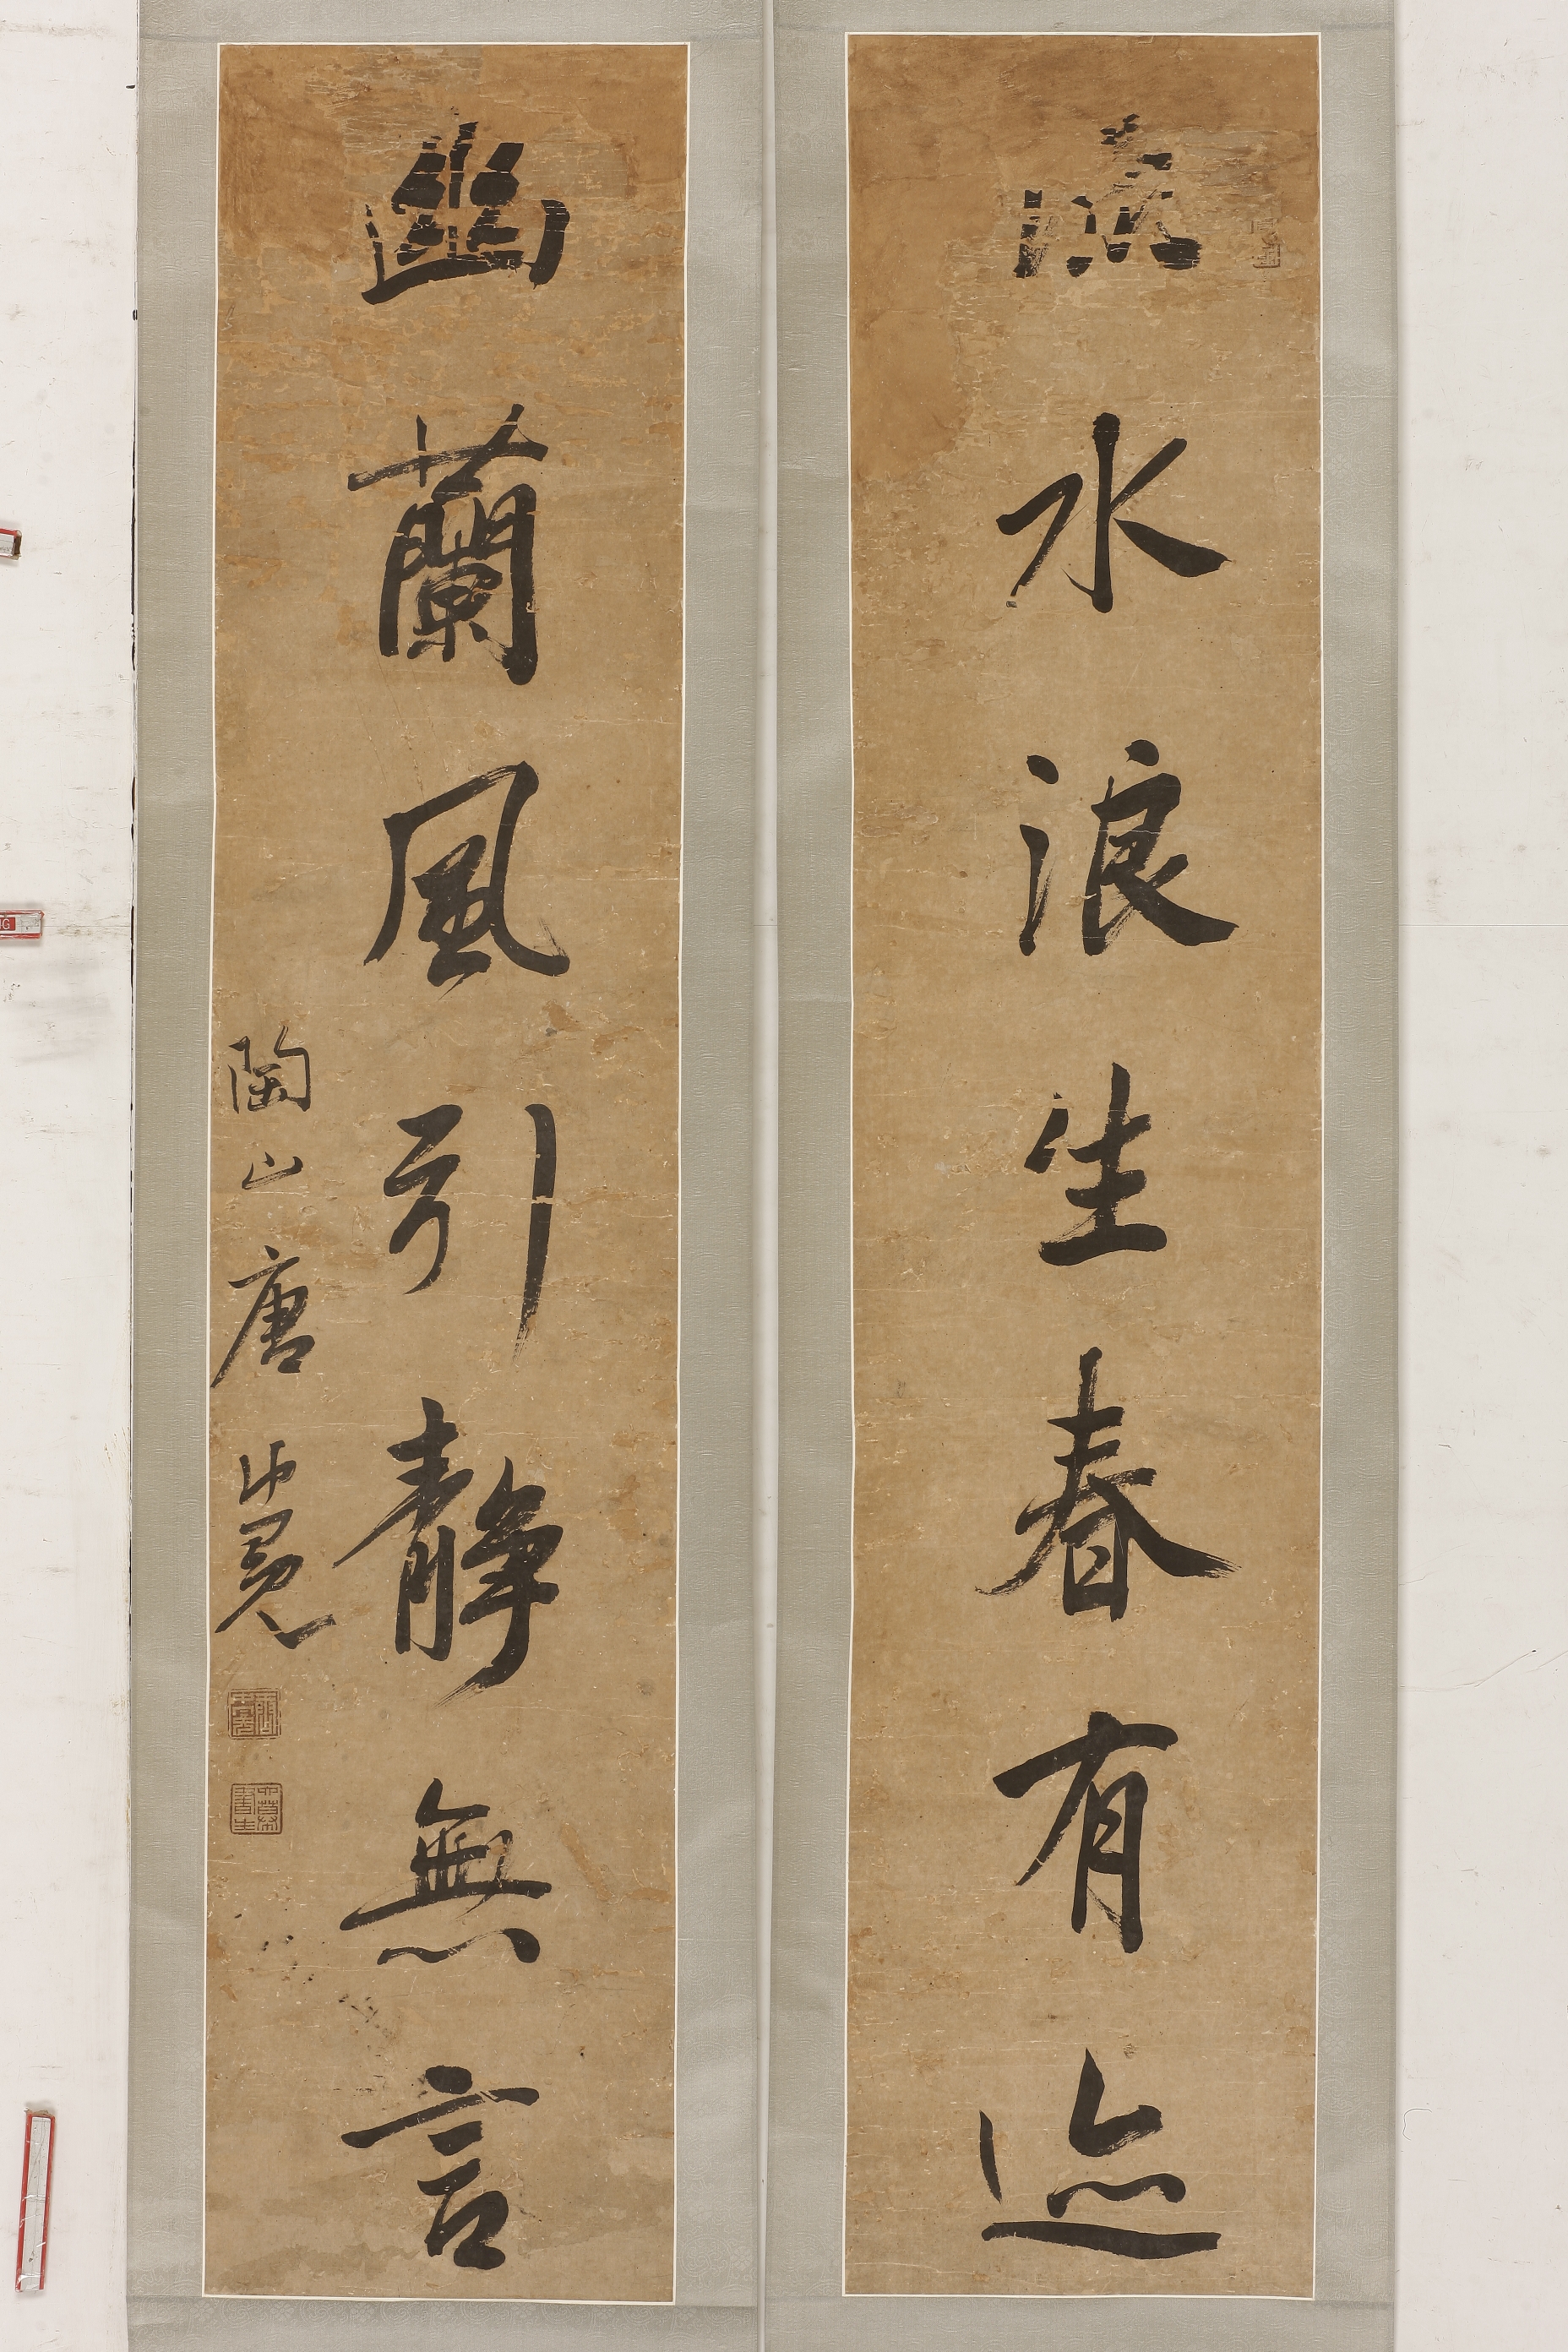 水浪生春有迹
幽蘭風引靜無言
陶山唐仲冕